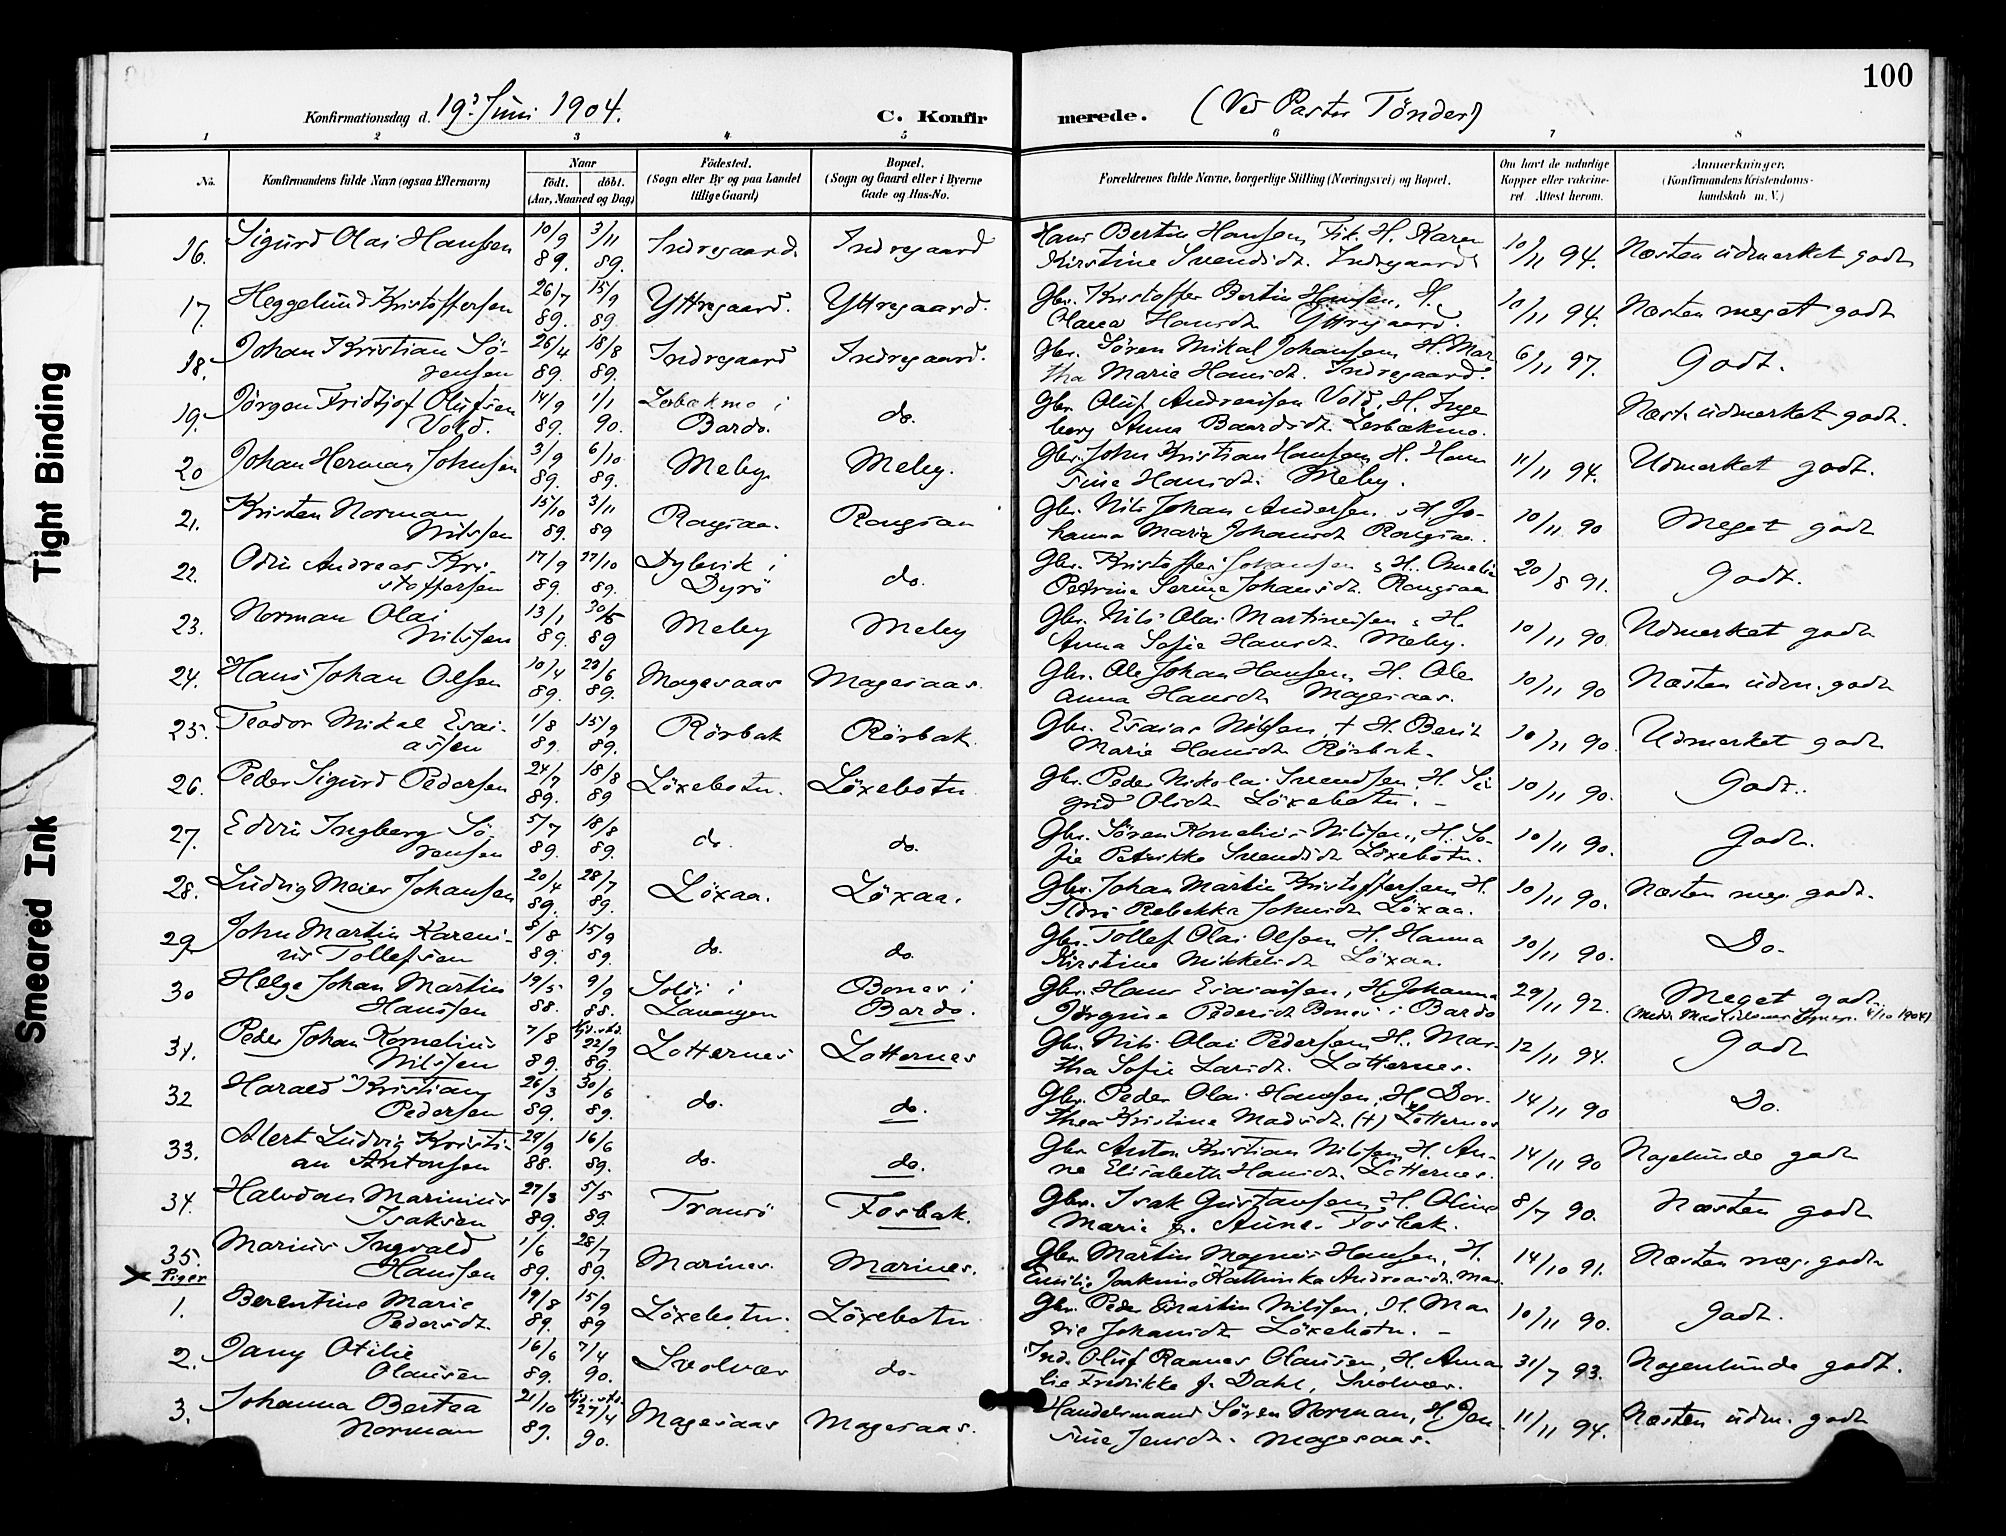 100
Konfirmationsdag d. 19de Juni 1904. C. Konfirmerede. (Ved Pastor Tönder)
1 2 3 4 5 6 7 8
No. Konfirmandens fulde Navn (ogsaa Efternavn) Naar födt. döbt. (Aar, Maaned og Dag) Födested. (Sogn eller By og paa Landet tillige Gaard) Bopæl. (Sogn og Gaard eller i Byerne Gade og Hus-No. Forældrenes fulde Navne, borgerlige Stilling (Næringsvei) og Bopæl. Om havt de naturlige Kopper eller vakcineret. Attest herom. Anmærkninger. (Konfirmandens Kristendomskundskab m. V.)
16. Sigurd Olai Hanssen 10/9 89. 3/11 89. Indregaard. Indregaard Hans Bertin Hansen, Fisk. H. Karen
Kirstine Svendsdt. Indregaard 10/11 94. Næsten udmerket godt
17. Heggelund Kristoffersen 26/7 89. 15/9 89 Yttregaard. Yttregaard. Gbr. Kristoffer Bertin Hansen, H.
Olava Hansdt. Yttregaard. 10/11 94. Næsten meget godt
18. Johan Kristian Sö-
rensen 26/4 89. 18/8 89. Indregaard Indregaard. Gbr. Sören Mikal Johansen, H. Mar
tha Marie Hansdt. Indregaard. 6/11 97. Godt.
19. Jörgen Fridtjof Olufsen
Vold. 14/9 89. 1/1 90. i
Bardo. do. Gbr. Oluf Andreassen Vold, H. Inge
borg Anna Baardsdt. Næst. udmerket godt.
20 Johan Herman Johnsen 3/9 89. 6/10 89. Meby Meby. Gbr. John Kristian Hansen, H. Han
sine Hansdt. Meby. 11/11 94. Udmerket godt.
21. Kristen Norman
Nilssen 15/10 89. 3/11 89 Rougsaa. Rougsaa Gbr. Nils Johan Andersen, H. Jo-
hanna Marie Johansdt. Rougsaa. 10/11 90 Meget godt
22. Odin Andreas Kri-
stoffersen 17/9 89. 27/10 89. Dybvik i
Dyrö do. Gbr. Kristoffer Johansen, H. Amelia
Petrine Serine Johansdt. Rougsaa 20/8 91. Godt.
23. Norman Olai
Nilssen 13/1 89. 30/5 89 Meby Meby Gbr. Nils Olai Martinussen, H.
Anna Sofie Hansdt. Meby. 10/11 90. Udmerket godt
24. Hans Johan Olsen 10/4 89. 23/6 89. Magesaas Magesaas. Gbr. Ole Johan Hansen, H. Ole
anna Hansdt. Magesaas. 10/11 90 Næsten udm. godt
25. Teodor Mikal Esai-
assen 1/8 89. 15/9 89. Rörbak Rörbak. Gbr. Esaias Nilssen, + H. Berit
Marie Hansdt. Rörbak. 10/11 90. Udmerket godt
26. Peder Sigurd Pedersen 24/7 89. 18/8 89 Löxebotn. Löxebotn Gbr. Peder Nikolai Svendsen, H. Si
grid Olsdt. Löxebotn. 10/11 90. Godt.
27. Edvin Ingberg Sö-
rensen 5/7 89. 18/8 89. do. do. Gbr. Sören Kornelius Nilssen, H. So-
fie Petrikke Svendsdt. Löxebotn. 10/11 90. Godt.
28. Ludvig Meier Johansen 20/4 89. 28/7 89. Löxaa. Löxaa. Gbr. Johan Martin Kristoffersen, H.
Rebekka Johnsdt. Löxaa. 10/11 90. Næsten meg. godt.
29 John Martin Kareni-
us Tollefsen 8/8 89. 15/9 89. do. do. Gbr. Tollef Olai Olsen, H. Hanna
Kirstine Mikkelsdt. Löxaa. 10/11 90. Do.
30 Helge Johan Martin
Hanssen 19/5 88. 9/9 88. Soløi i
Lavangen Bones i
Bardo. Gbr. Hans Esaiassen, H. Johanna
Jörgine Pedersdt. Bones i Bardo 29/11 92. Meget godt
31. Peder Johan Kornelius
Nilssen 7/8 89. Hjd. stf. 22/9 89. Lotternes Lotternes Gbr. Nils Olai Pedersen, H. Mar-
tha Sofie Larsdt. Lotternes. 12/11 94. Godt
32 Harald Kristian
Pedersen 26/3 89. 30/6 89. do. do. Gbr. Peder Olai Hansen, H. Dor-
thea Kristine Madsdt. (+) Lotternes 14/11 90 Do.
33. Alert Ludvig Kristi-
an Antonsen 29/9 88. 16/6 89. do. do. Gbr. Anton Kristian Nilssen, H. An-
ne Elisabeth Hansdt. Lotternes. 14/11 90 Nogenlunde godt
34. Halvdan Marinius
Isaksen 27/3 89. 5/5 89. Tromsö Fosbak. Gbr. Isak Gustavsen, H. Oline
Marie f. Aune. Fosbak. 8/7 90. Næsten godt
35. Marius Ingvald
Hanssen 1/6 89. 28/7 89. Marines. Marines. Gbr. Martin Magnus Hansen, H.
Emilie Joakime Kathinka Andreasdt. Mar. 14/10 91. Næsten meg. godt
Piger
1. Berentine Marie
Pedersdt. 19/8 89. 15/9 89 Löxebotn. Löxebotn Gbr. Peder Martin Nilssen, H. Ma
rie Johansdt. Löxebotn. 10/11 90. Godt.
2. Dany Otilie
Olaussen 16/6 89. 7/4 90. Svolvær do. Oluf Raanes Olaussen, H. Ama
lie Fredrikke f. Dahl, Svolvær. 31/7 93. Nogenlunde godt.
3. Johanna Bertea
Norman 21/10 89. Hjd. stf. 27/4 90. Magesaas Magesaas. Handelsmand Sören Norman, H. Jen-
sine Jensdt. Magesaas. 11/11 94. Næsten udm. godt
Tight Binding
Smeared Ink